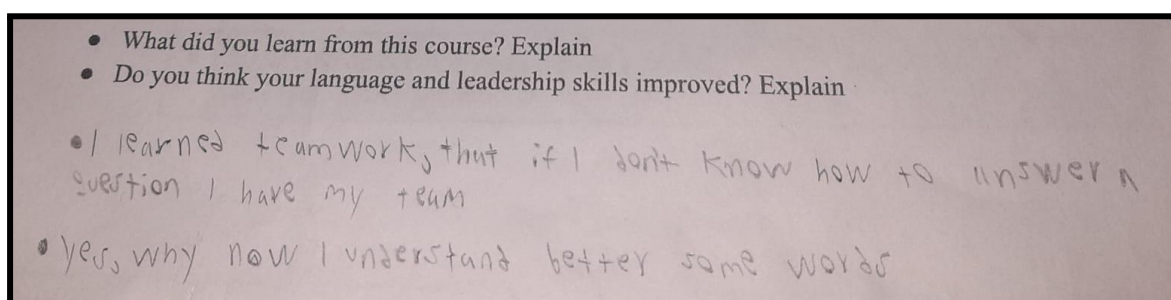 • What did you learn from this course? Explain
• Do you think your language and leadership skills improved? Explain
• I learned teamwork, that if I don't know how to answer a
question I have my team
• Yes, why now I understand better some words